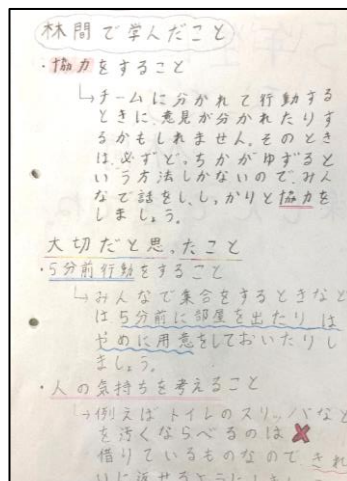 林間で学んだこと
・協力をすること
↳チームに分かれて行動する
ときに、意見が分かれたりす
るかもしれません。そのとき
は、必ずどっちかがゆずると
いう方法しかないのでみん
なで話をし、しっかりと協力を
しましょう。
大切だと思ったこと
・5分前行動をすること
↳みんなで集合をするときなど
は5分前に部屋を出たりは
やめに用意をしておいたりし
ましょう。
・人の気持ちを考えること
↳例えばトイレのスリッパなど
を汚くならべるのは✗
借りているものなので、きれ
いに返せるようにしましょう